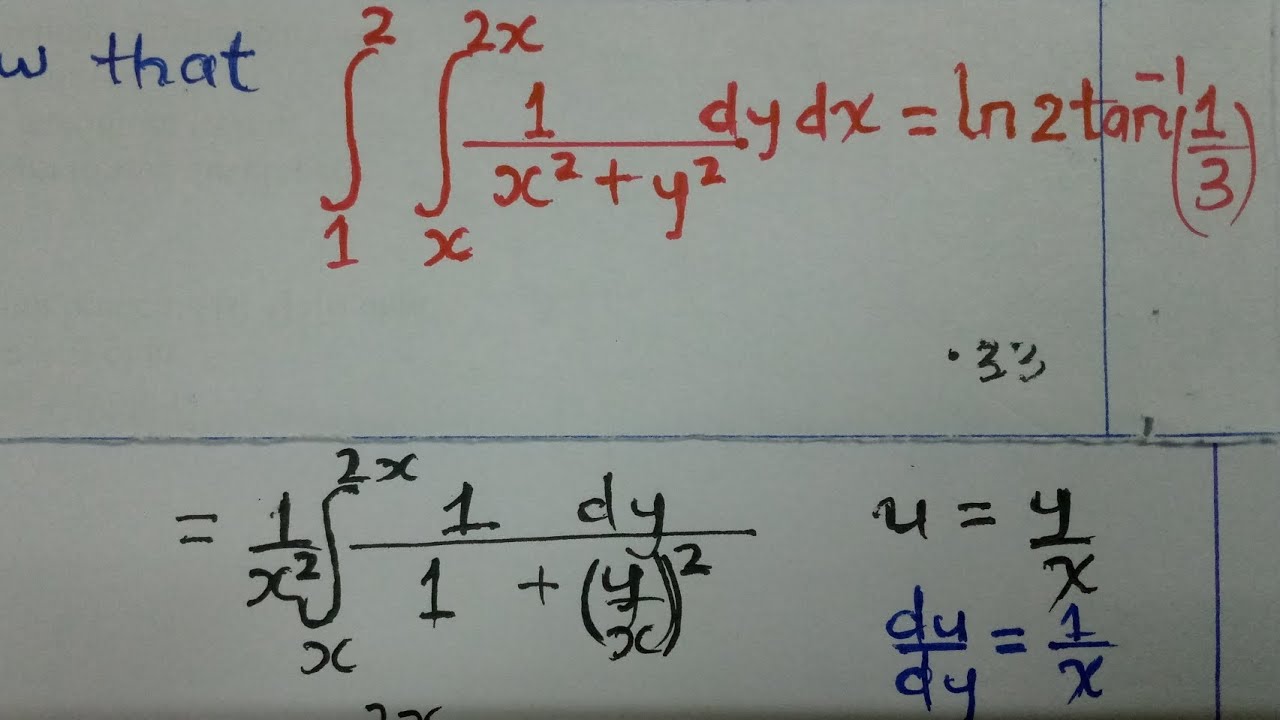 w that ∫₁² ∫ₓ²ˣ 1/(x² + y²) dy dx = ln 2 tan⁻¹(1/3)
.33
= 1/x² ∫ₓ²ˣ 1/(1 + (y/x)²) dy u = y/x
du/dy = 1/x
2x